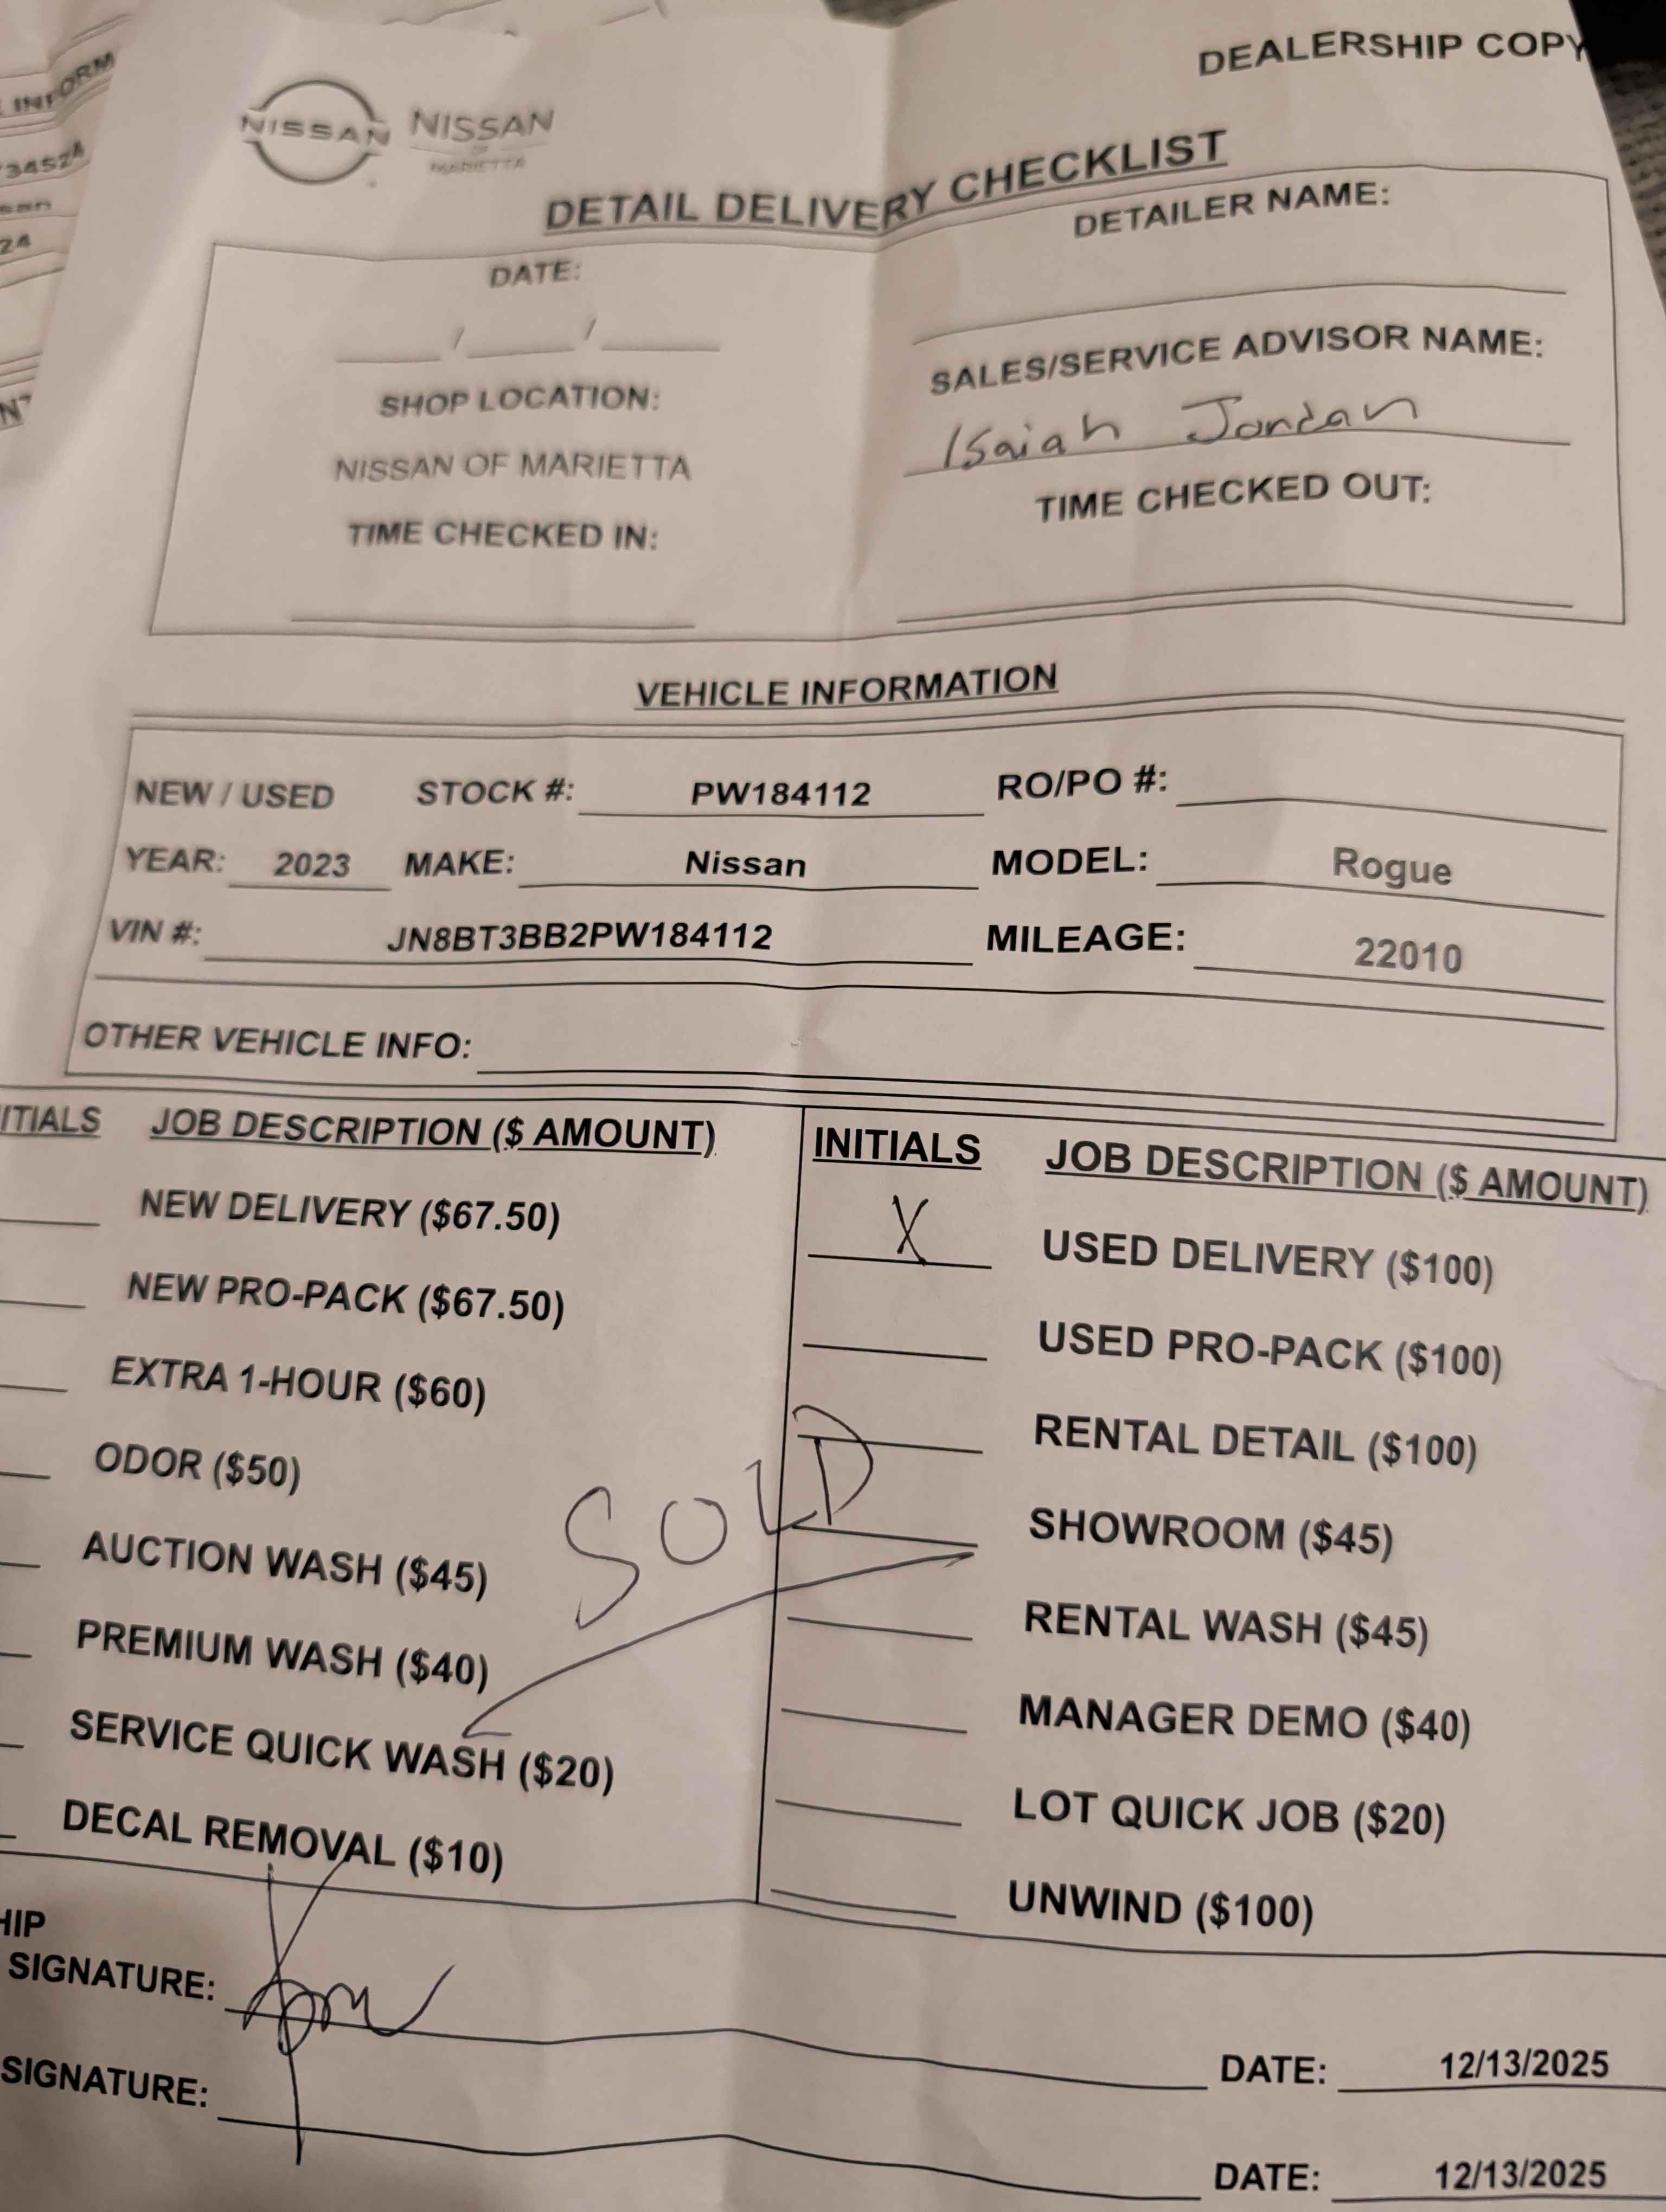 DEALERSHIP COPY
NISSAN NISSAN
OF
MARIETTA
DETAIL DELIVERY CHECKLIST
DATE:
/ /
SHOP LOCATION:
NISSAN OF MARIETTA
TIME CHECKED IN:
DETAILER NAME:
SALES/SERVICE ADVISOR NAME:
Isaiah Jordan
TIME CHECKED OUT:
VEHICLE INFORMATION
NEW / USED STOCK #: PW184112 RO/PO #:
YEAR: 2023 MAKE: Nissan MODEL: Rogue
VIN #: JN8BT3BB2PW184112 MILEAGE: 22010
OTHER VEHICLE INFO:
ITIALS JOB DESCRIPTION ($ AMOUNT)
NEW DELIVERY ($67.50)
NEW PRO-PACK ($67.50)
EXTRA 1-HOUR ($60)
ODOR ($50)
AUCTION WASH ($45)
PREMIUM WASH ($40)
SERVICE QUICK WASH ($20)
DECAL REMOVAL ($10)
INITIALS JOB DESCRIPTION ($ AMOUNT)
X USED DELIVERY ($100)
USED PRO-PACK ($100)
RENTAL DETAIL ($100)
SHOWROOM ($45)
RENTAL WASH ($45)
MANAGER DEMO ($40)
LOT QUICK JOB ($20)
UNWIND ($100)
SOLD
HIP
SIGNATURE: DATE: 12/13/2025
SIGNATURE: DATE: 12/13/2025
INFORM
3452A
san
24